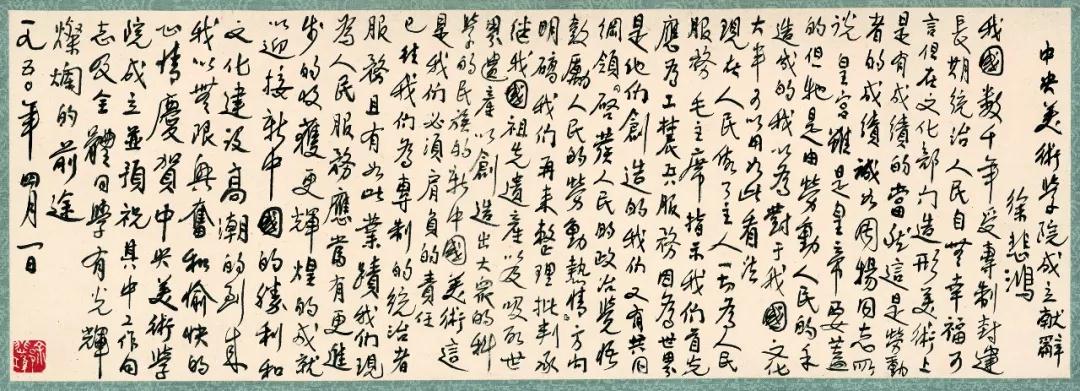 中央美術學院成立献辭
徐悲鴻
我國數千年受專制封建
長期統治人民自無幸福可
言但在文化部门造形美術上
是有成績的當然這是勞動
者的成績誠如周揚同志所
說皇宮雖是皇帝要蓋
的但牠是由勞動人民的手
造成的我以為對于我國文化
大半可以用如此看法
現在人民作了主人一切為人民
服務毛主席指示我們首先
應為工農兵服務因為世界
是他們創造的我們又有共同
綱領「啓發人民的政治覺悟
鼓勵人民的勞動熱情」方向
明確我們再来整理批判承
继我國祖先遺產以及吸取世
界遺產以創造出大眾的科
學的民族的新中國美術這
是我們必須肩負的責任
已往我們為專制的統治者
服務且有如此業蹟我們現
為人民服務應當有更進
步的收獲更輝煌的成就
以迎接新中國的勝利和
文化建設高潮的到来
我以無限興奮和愉快的
心情慶賀中央美術學
院成立並預祝其中工作同
志及全體同學有光輝
燦爛的前途
一九五〇年四月一日